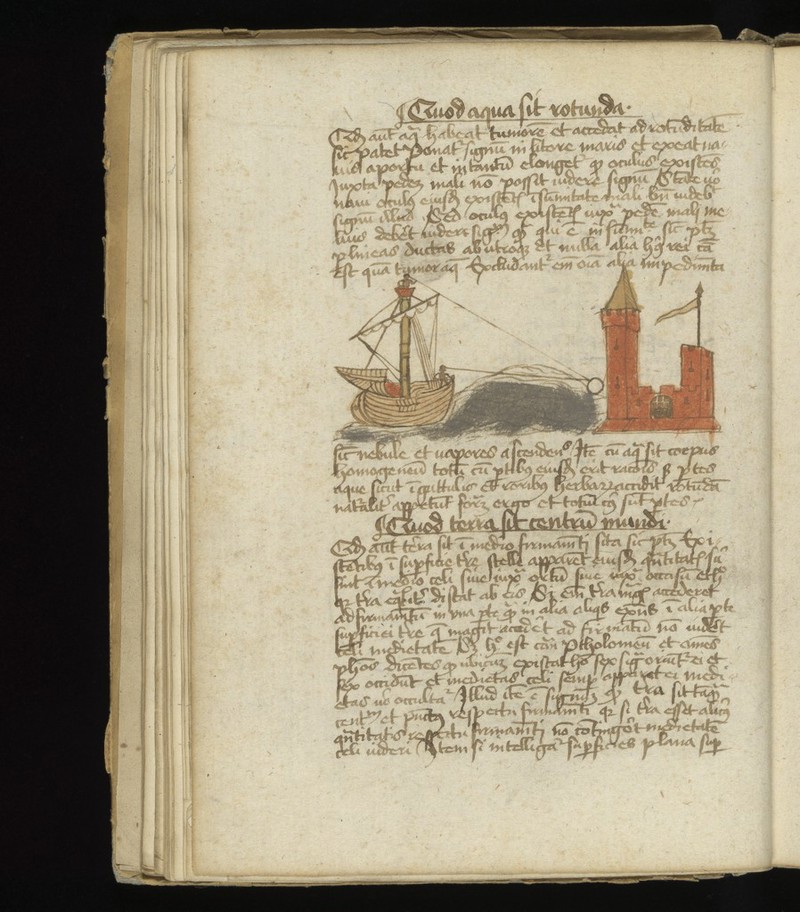 Quod aqua sit rotunda.
Qd aut aq̄ habeat tumorē et accedat ad rotūditatē
sic patet Ponat signū in litore maris et exeat na-
uis a portu et in tantū elonget qꝫ oculus existēs
iuxta pedeꝫ mali nō possit uidere signū Stāte uo
naui oculus eiusdē existēs ī sūmitate mali bn̄ uideb
signū illud Sed oculus existēs iuxᵃ pedē mali me
lius debet uidere sigᵐ qꝫ qui ē in sūmitᵗᵉ sic ptꝫ
p lineas ductas ab utroqꝫ et nulla alia hꝰ rei cā
Est quā tumor aq̄ Excludant em̄ oīa alia impedimēta
sic nebule et uapores ascendens Itē cū aq̄ sit corpus
homogeneū totū cū ptibꝰ eiusdē erit racōis ꝫ ptes
aque sicut ī guttulis et roribꝰ herbarꝫ accidit rotūdā
nataliᵗ appetūt formā ergo et totū cꝰ sūt ptes
Quod terra sit centrū mundi.
Qd aut tērra sit ī medio firmamēti sita sic ptꝫ Exi-
stētibꝰ ī supficie tre stelle apparēt eiusdē qn̄titatis siue
sint ī medio celi siue iuxᵃ ortū siue iuxᵃ occasū et hͦ
qꝫ tra eqlitᵉ distat ab eis Si em̄ tra magꝭ accederet
ad firmamētū in una pte qꝫ in alia aliqꝭ exn̄s ī alia pte
supficiei tre q̄ magꝭ accedēt ad firmamētū nō uidēt
celi medietatē Sꝫ hͦ est cōtra Ptholomeū et omēs
phos dicētes qꝫ ubicūqꝫ existat hō sex sigᵃ oriūt ei et
sex occidūt et medietas celi semp apparet ei medi-
etas uo occultaᵗ Illud itē ē signū qꝫ tra sit tāqꝫ
centʳᵐ et pūctꝰ respectu firmamēti qꝫ si tra esset alicꝰ
qn̄titatis respectu firmamēti nō cōtingēt medietatē
celi uideri Item si intelligaᵗ supficies plana sup